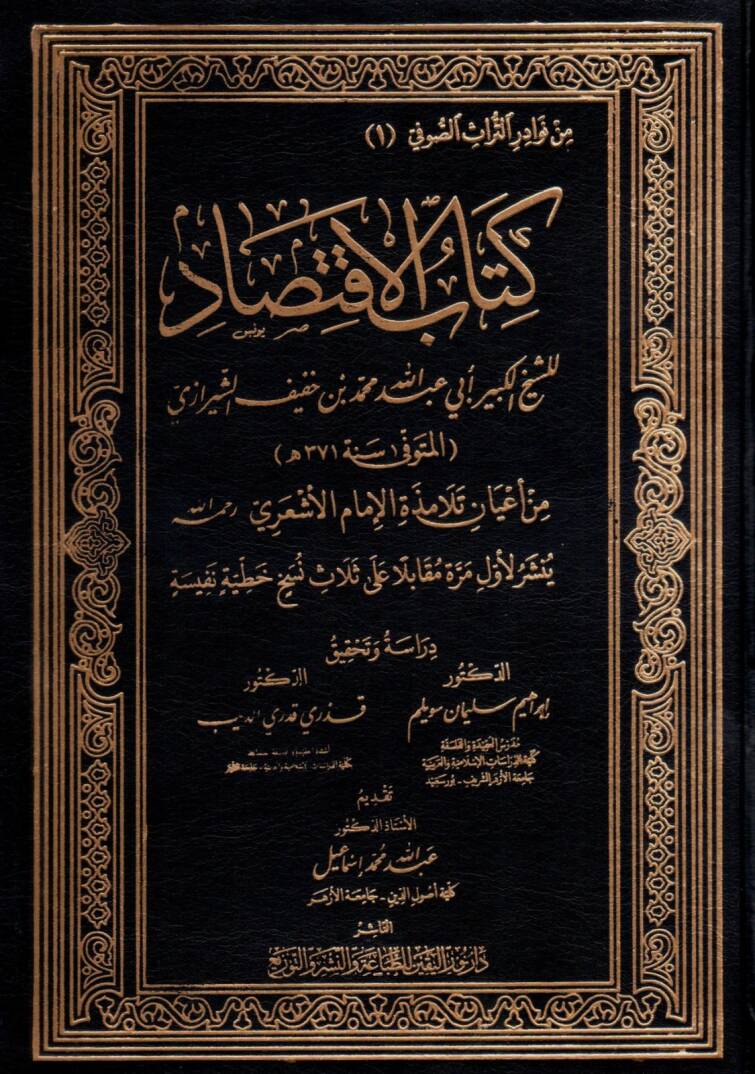 مِنْ نَوَادِرِ التُّرَاثِ الصُّوفِيِّ (١)
كِتَابُ الاقْتِصَادِ
للشيخ الكبير أبي عبد الله محمد بن خفيف الشيرازي
(المتوفى سنة ٣٧١ هـ)
مِنْ أَعْيَانِ تَلَامِذَةِ الإِمَامِ الأَشْعَرِيِّ رحمه الله
يُنْشَرُ لأَوَّلِ مَرَّة مُقَابَلًا عَلَى ثَلَاثِ نُسَخٍ خَطِّيَّةٍ نَفِيسَةٍ
دِرَاسَةُ وَتَحْقِيقُ
الدكتور
إبراهيم سليمان سويلم
مُدَرِّسُ العَقِيدَةِ وَالفَلْسَفَةِ
كلية الدراسات الإسلامية والعربية
جامعة الأزهر الشريف - بورسعيد
الدكتور
قدري قدري الديب
تَقْدِيمُ
الأستاذ الدكتور
عبد الله محمد إسماعيل
كلية أصول الدين - جامعة الأزهر
الناشر
دار نور اليقين للطباعة والنشر والتوزيع